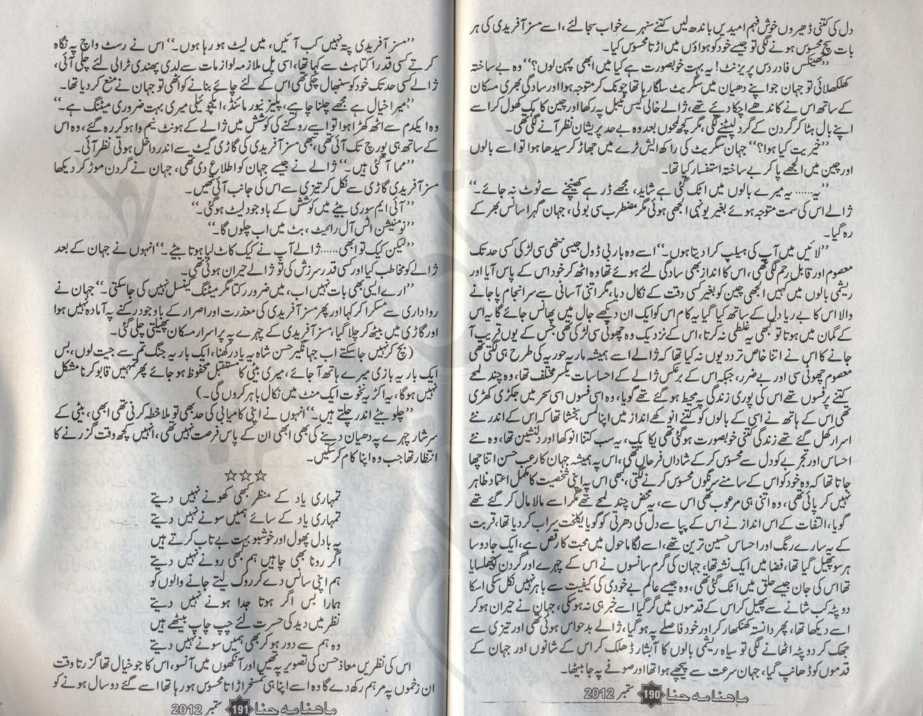 دل کی کتنی ڈھیروں خوش فہم امیدیں باندھ لیں کتنے سنہرے خواب سجا لئے، اسے مسز آفریدی کی ہر
بات سچ محسوس ہونے لگی تو جیسے خود کو ہواؤں میں اڑتا محسوس کیا۔
”تھینکس فار دس پریزنٹ! یہ بہت خوبصورت ہے کیا میں ابھی پہن لوں؟“ وہ بے ساختہ
کھلکھلائی تو جہان جو اپنے دھیان میں سگریٹ سلگا رہا تھا چونک کر متوجہ ہوا اور سادگی بھری مسکان
کے ساتھ اس نے کاندھے اچکا دیئے تھے، ژالے خالی کیس ٹیبل پہ رکھا اور چین کا ہک کھول کر اسے
اپنے بال ہٹا کر گردن کے گرد لپیٹنے لگی، مگر کچھ لمحوں بعد وہ بے حد پریشان نظر آنے لگی تھی۔
”خیریت کیا ہوا؟“ جہان سگریٹ کی راکھ ایش ٹرے میں جھاڑ کر سیدھا ہوا تو اسے بالوں
اور چین میں الجھے پا کر بے ساختہ استفسار کیا تھا۔
”یہ...... یہ میرے بالوں میں اٹک گئی ہے شاید، مجھے ڈر ہے کھینچنے سے ٹوٹ نہ جائے۔“
ژالے اس کی سمت متوجہ ہوئے بغیر یونہی الجھی ہوئی مگر مضطرب سی بولی، جہان گہرا سانس بھر کے
رہ گیا۔
”لائیں میں آپ کی ہیلپ کرا دیتا ہوں۔“ اسے وہ باربی ڈول جیسی ننھی سی لڑکی کسی حد تک
معصوم اور قابل رحم لگی تھی، اس کا انداز بھی سادگی لئے ہوئے تھا وہ اٹھ کر خود اس کے پاس آیا اور
ریشمی بالوں میں بہیں الجھی چین کو بغیر کسی دقت کے نکال دیا، مگر اتنی آسانی سے سر انجام پا جانے
والا اس کا بے ریا دل کے ساتھ کیا گیا یہ کام اس کو ایک ان دیکھے جال میں پھانس جائے گا یہ اس
کے گمان میں ہوتا تو کبھی یہ غلطی نہ کرتا، اس کے نزدیک وہ چھوٹی سی لڑکی تھی جس کے یوں قریب آ
جانے کا اس نے اتنا خاص تردد یوں نہ کیا تھا کہ ژالے اسے ہمیشہ ماریہ حوریہ کی طرح ہی لگتی تھی
معصوم چھوٹی سی اور بے ضرر، جبکہ اس کے برعکس ژالے کے احساسات یکسر مختلف تھا، وہ چند لمحے
کتنے پرفسوں تھے اس کی پوری زندگی پہ محیط ہو گئے تھے گویا، وہ اسی فسوں اسی سحر میں جکڑی کھڑی
تھی اس کے ہاتھ نے اسی کے بالوں کو کتنے انوکھے انداز میں اپنا لمس بخشا تھا کہ اس کے اندر نئے
اسرار کھل گئے تھے زندگی کتنی خوبصورت ہو گئی تھی یکایک، یہ سب کتنا انوکھا اور دلنشین تھا، وہ نئے
احساس اور تجربے کو دل سے محسوس کر کے شاداں فرحاں تھی، اس پہ ہمیشہ جہان کا رعب حسن اتنا چھا
جاتا تھا کہ وہ خود کو اس کے سامنے سرنگوں محسوس کرنے لگتی، کبھی اس پہ اپنی شخصیت کا مکمل اعتماد ظاہر
نہیں کر پائی تھی، وہ اتنی ہی مرعوب تھی اس سے، یہ محض چند لمحے تھے مگر اسے مالا مال کر گئے تھے
گویا، التفات کے اس انداز نے اس کے پیاسے دل کی دھرتی کو گویا یکلخت سیراب کر دیا تھا، قربت
کے یہ سارے رنگ اور احساس حسین ترین تھے، اسے لگا ماحول میں محبت کا رقص ہے، ایک جادو سا
ہر سو پھیل گیا تھا، فضا میں ایک نشہ تھا، جہان کی گرم سانسوں نے اس کے چہرے اور گردن کو جھلسایا
تھا اس کی جان جیسے حلق میں اٹک گئی تھی، وہ جیسے عالم بے خودی کی کیفیت سے باہر نہیں نکل سکی اسکا
دوپٹہ کب شانے سے پھسل کر اس کے قدموں میں گر گیا اسے خبر ہی نہ ہو سکی، جہان نے حیران ہو کر
اسے دیکھا تھا، پھر دانستہ کھنکھار کر اور خود فاصلے پہ ہو گیا، ژالے بدحواس ہوئی تھی اور تیزی سے
جھک کر دوپٹہ اٹھانے لگی تو سیاہ ریشمی بالوں کا آبشار ڈھلک کر اس کے شانوں اور جہان کے
قدموں کو ڈھانپ گیا، جہان سرعت سے پیچھے ہوا تھا اور صوفے پہ جا بیٹھا۔
ماہنامہ حنا 190 ستمبر 2012
”مسز آفریدی پتہ نہیں کب آئیں، میں لیٹ ہو رہا ہوں۔“ اس نے رسٹ واچ پہ نگاہ
کرتے کسی قدر اکتاہٹ سے کہا تھا، اسی پل ملازمہ لوازمات سے لدی پھندی ٹرالی لئے چلی آئی،
ژالے کسی حد تک خود کو سنبھال چکی تھی اس کے لئے چائے بنانے کو اٹھی تو جہان نے منع کر دیا تھا۔
”میرا خیال ہے مجھے چلنا چاہیے، پلیز نیور مائنڈ، ایکچوئیلی میری بہت ضروری میٹنگ ہے۔“
وہ ایکدم سے اٹھ کھڑا ہوا تو اسے روکنے کی کوشش میں ژالے کے ہونٹ نیم وا ہو کر رہ گئے، وہ اس
کے ساتھ ہی پورچ تک آئی تھی، جبھی مسز آفریدی کی گاڑی گیٹ سے اندر داخل ہوتی نظر آئی۔
”مما آ گئی ہیں۔“ ژالے نے جیسے جہان کو اطلاع دی تھی، جہان نے گردن موڑ کر دیکھا
مسز آفریدی گاڑی سے نکل کر تیزی سے اس کی جانب آئی تھیں۔
”آئی ایم سوری بیٹے میں کوشش کے باوجود لیٹ ہو گئی۔“
”نو مینشن اٹس آل رائیٹ، بٹ میں اب چلوں گا۔“
”لیکن کیک تو ابھی...... ژالے آپ نے کیک کاٹ لیا ہوتا بیٹے۔“ انہوں نے جہان کے بعد
ژالے کو مخاطب کیا اور کسی قدر سرزنش کی تو ژالے حیران ہوئی تھی۔
”ارے ایسی بھی بات نہیں اب، میں ضرور رکتا مگر میٹنگ کینسل نہیں کی جا سکتی۔“ جہان نے
رواداری سے مسکرا کر کہا اور پھر مسز آفریدی کی معذرت اور اصرار کے باوجود رکنے پہ آمادہ نہیں ہوا
اور گاڑی میں بیٹھ کر چلا گیا، مسز آفریدی کے چہرے پہ پراسرار مسکان پھیلتی چلی گئی۔
(بچ کر نہیں جا سکتے اب جہانگیر حسن شاہ یہ یاد رکھنا، ایک بار یہ جنگ تم سے جیت لوں، بس
ایک بار یہ بازی میرے ہاتھ آ جائے، میری بیٹی کا مستقبل محفوظ ہو جائے پھر تمہیں قابو کرنا مشکل
نہیں ہو گا، یہ اکڑ یہ نخوت ایک منٹ میں نکال باہر کروں گی۔)
”چلو بیٹے اندر چلتے ہیں۔“ انہوں نے اپنی کامیابی کی حد بھی تو ملاحظہ کرنی تھی ابھی، بیٹی کے
سرشار چہرے پہ دھیان دینے کی بھی ابھی ان کے پاس فرصت نہیں تھی، انہیں کچھ وقت گزرنے کا
انتظار تھا جب وہ اپنا کام کر سکیں۔
☆☆☆
تمہاری یاد کے منظر بھی کھونے نہیں دیتے
تمہاری یاد کے سائے ہمیں سونے نہیں دیتے
یہ بادل پھول اور خوشبو بہت بے تاب کرتے ہیں
اگر رونا بھی چاہیں ہم بھی رونے نہیں دیتے
ہم اپنی سانس دے کر روک لیتے جانے والوں کو
ہمارا بس اگر ہوتا جدا ہونے نہیں دیتے
نظر میں دید کی حسرت لئے چپ چاپ بیٹھے ہیں
وہ ہم سے دور ہو کر بھی ہمیں سونے نہیں دیتے
اس کی نظریں معاذ حسن کی تصویر پہ تھیں اور آنکھوں میں آنسو، اس کا جو خیال تھا گزرتا وقت
ان زخموں پہ مرہم رکھ دے گا وہ اسے اپنا ہی تمسخر اڑاتا محسوس ہو رہا تھا اسے گئے دو سال ہونے کو
ماہنامہ حنا 191 ستمبر 2012